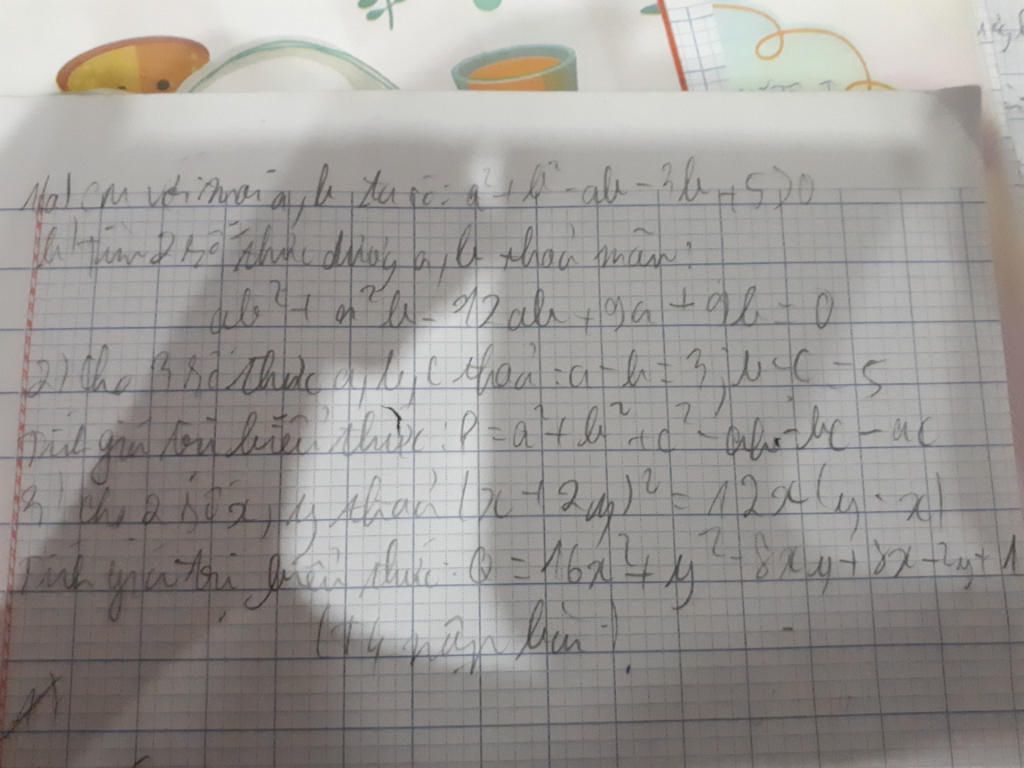 1)a) CM với mọi a, b, ta có: a² + b² - ab - 3b + 5 > 0
b) Tìm 2 số thực dương a, b thoả mãn:
ab² + a²b - 12ab + 9a + 9b = 0
2) Cho 3 số thực a, b, c thoả: a - b = 3; b - c = 5
Tính giá trị biểu thức: P = a² + b² + c² - ab - bc - ac
3) Cho 2 số x, y thoả (x + 2y)² = 12x(y - x)
Tính giá trị biểu thức: Q = 16x² + y² - 8xy + 8x - 2y + 1
(T4 nộp bài)
1)